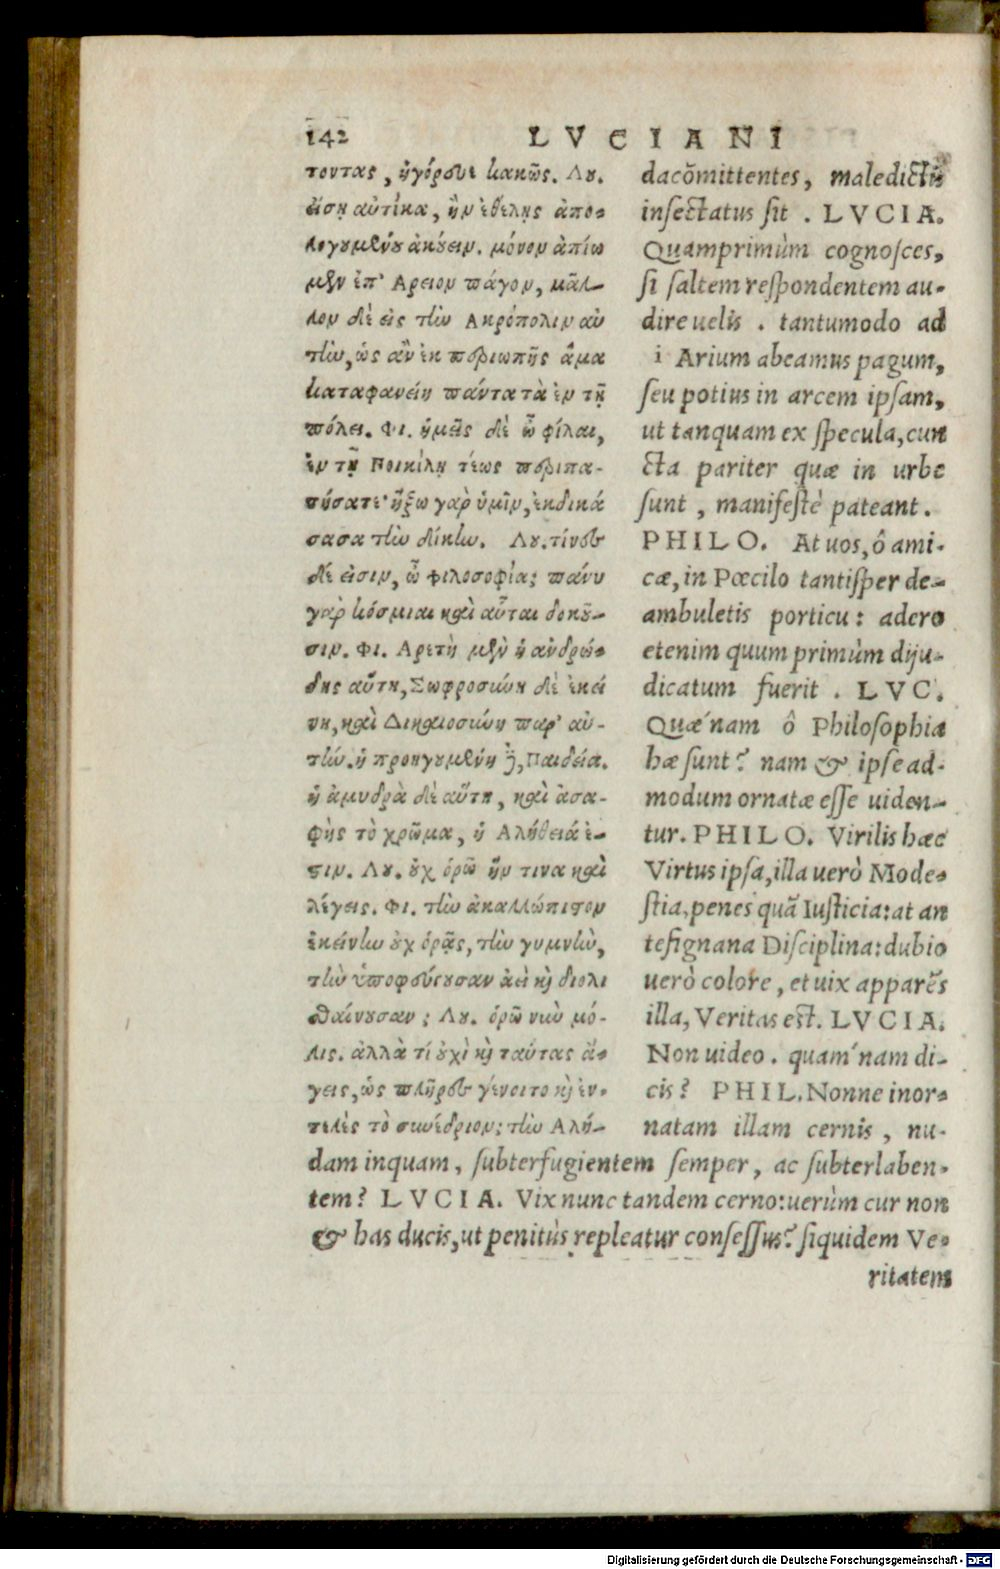 142 LVCIANI
τοντας, ἠγόρευε κακῶς. Λυ.
εἴσῃ αὐτίκα, ἢν ἐθελῃς ἀπο-
λογουμένου ἀκούειν. μόνον ἀπίω
μεν ἐπ' Αρειον πάγον, μᾶλ-
λον δὲ εἰς τὴν Ακρόπολιν αὐ
τὴν, ὡς ἂν ἐκ περιωπῆς ἅμα
καταφανείη πάντα τὰ ἐν τῇ
πόλει. Φι. ὑμεῖς δὲ ὦ φίλαι,
ἐν τῇ Ποικίλῃ τέως περιπα-
τήσατε· ἥξω γὰρ ὑμῖν, ἐκδικά
σασα τὴν δίκην. Λυ. τίνες
δέ εἰσιν, ὦ φιλοσοφία; πάνυ
γὰρ κόσμιαι καὶ αὗται δοκοῦ-
σιν. Φι. Αρετὴ μὲν ἡ ἀνδρώ-
δης αὕτη, Σωφροσύνη δὲ ἐκεί
νη, καὶ Δικαιοσύνη παρ' αὐ-
τήν. ἡ προηγουμένη δὲ, Παιδεία.
ἡ ἀμυδρὰ δὲ αὕτη, καὶ ἀσα-
φὴς τὸ χρῶμα, ἡ Αλήθειά ἐ-
στιν. Λυ. οὐχ ὁρῶ ἥν τινα καὶ
λέγεις. Φι. τὴν ἀκαλλώπιστον
ἐκείνην οὐχ ὁρᾷς, τὴν γυμνὴν,
τὴν ὑποφεύγουσαν ἀεὶ καὶ διολι
σθαίνουσαν; Λυ. ὁρῶ νῦν μό-
λις. ἀλλὰ τί οὐχὶ καὶ ταύτας ἄ-
γεις, ὡς πλῆρες γένοιτο καὶ ἐν-
τελὲς τὸ συνέδριον; τὴν Αλή-
dacōmittentes, maledictis
insectatus sit . LVCIA.
Quamprimùm cognosces,
si saltem respondentem au-
dire uelis . tantumodo ad
i Arium abeamus pagum,
seu potius in arcem ipsam,
ut tanquam ex specula, cun
cta pariter quæ in urbe
sunt , manifestè pateant .
PHILO. At uos, ô ami-
cæ, in Pœcilo tantisper de-
ambuletis porticu: adero
etenim quum primùm diju-
dicatum fuerit . LVC.
Quæ´nam ô Philosophia
hæ sunt? nam & ipse ad-
modum ornatæ esse uiden-
tur. PHILO. Virilis hæc
Virtus ipsa, illa uerò Mode-
stia, penes quā Iusticia: at an
tesignana Disciplina: dubio
uerò colore, et uix apparēs
illa, Veritas est. LVCIA.
Non uideo. quam´nam di-
cis? PHIL. Nonne inor-
natam illam cernis , nu-
dam inquam, subterfugientem semper, ac subterlaben-
tem? LVCIA. Vix nunc tandem cerno: uerùm cur non
& has ducis, ut penitùs repleatur consessus? siquidem Ve-
ritatem
Digitalisierung gefördert durch die Deutsche Forschungsgemeinschaft - DFG